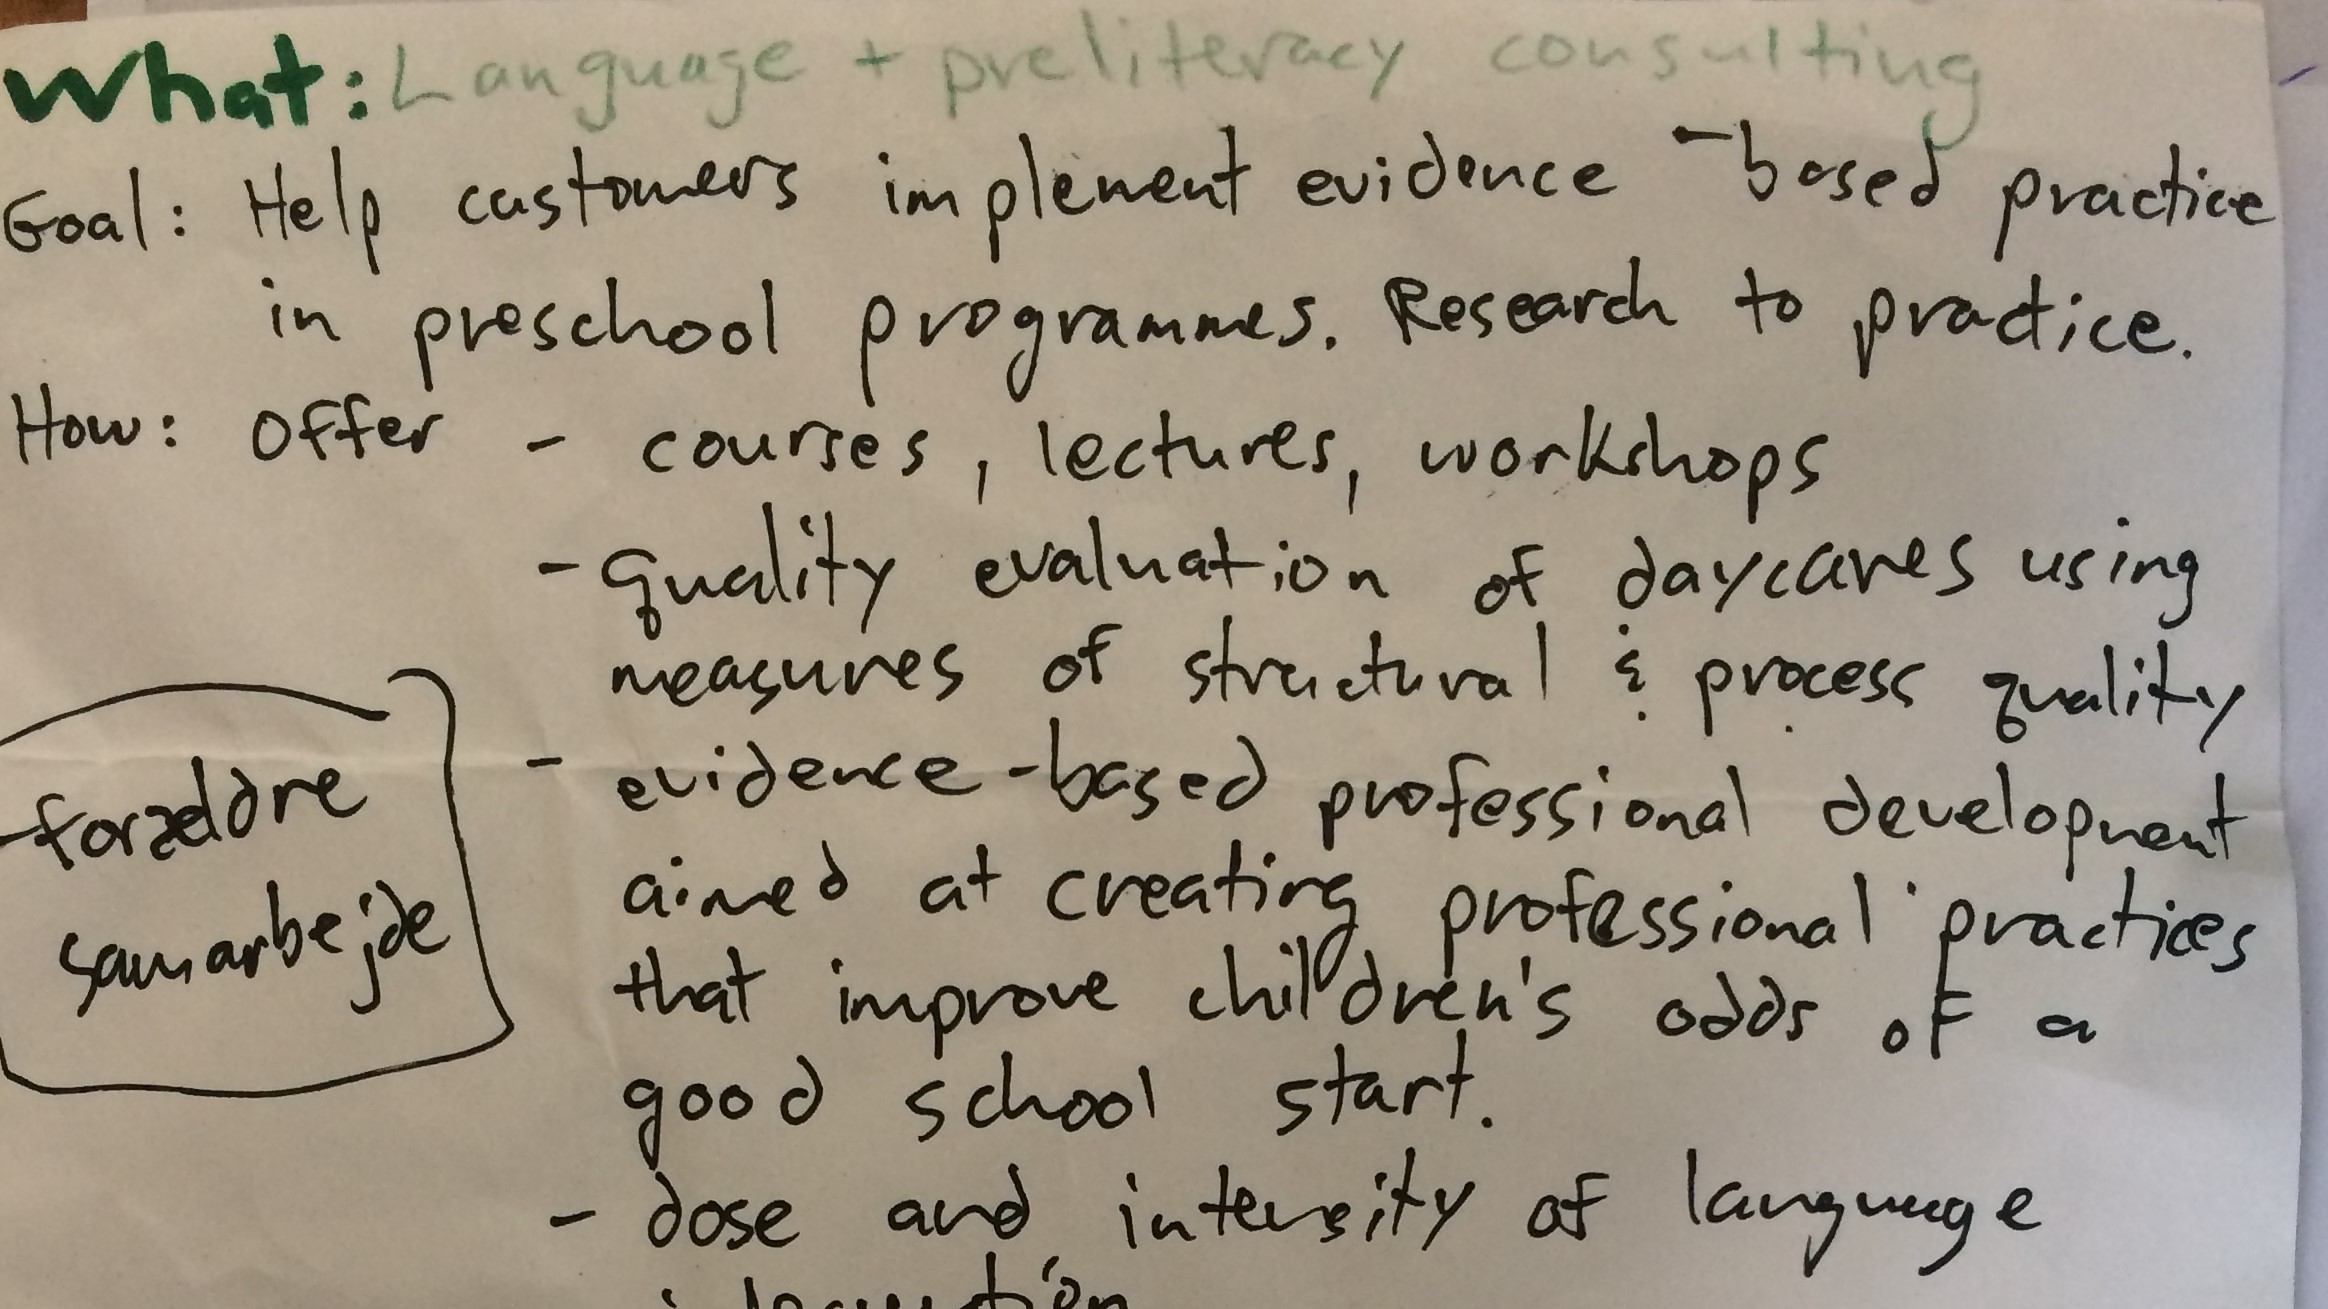 What: Language + preliteracy consulting
Goal: Help customers implement evidence-based practice
in preschool programmes. Research to practice.
How: Offer - courses, lectures, workshops
- quality evaluation of daycares using
measures of structural & process quality
- evidence-based professional development
aimed at creating professional practices
that improve children's odds of a
good school start.
- dose and intensity of language
forældre
samarbejde